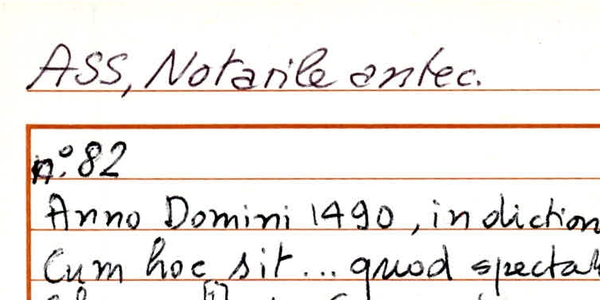 ASS, Notarile antec.
n.° 82
Anno Domini 1490, indiction
Cum hoc sit... quod spectab